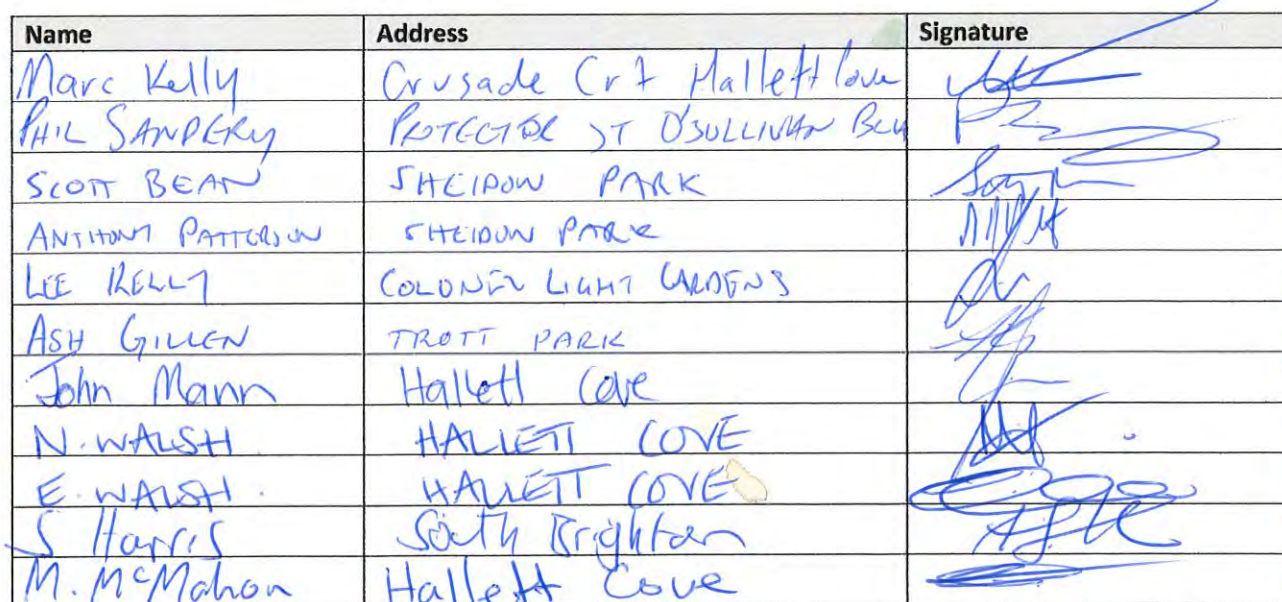 Name Address Signature
Marc Kelly Crusade Crt Hallett Cove
PHIL SANDERY PROTECTOR ST O'SULLIVAN BCH
SCOTT BEAN SHEIDOW PARK
ANTHONY PATTERSON SHEIDOW PARK
LEE KELLY COLONEL LIGHT GARDENS
ASH GILLEN TROTT PARK
John Mann Hallett Cove
N. WALSH HALLETT COVE
E. WALSH. HALLETT COVE
S Harris South Brighton
M. McMahon Hallett Cove